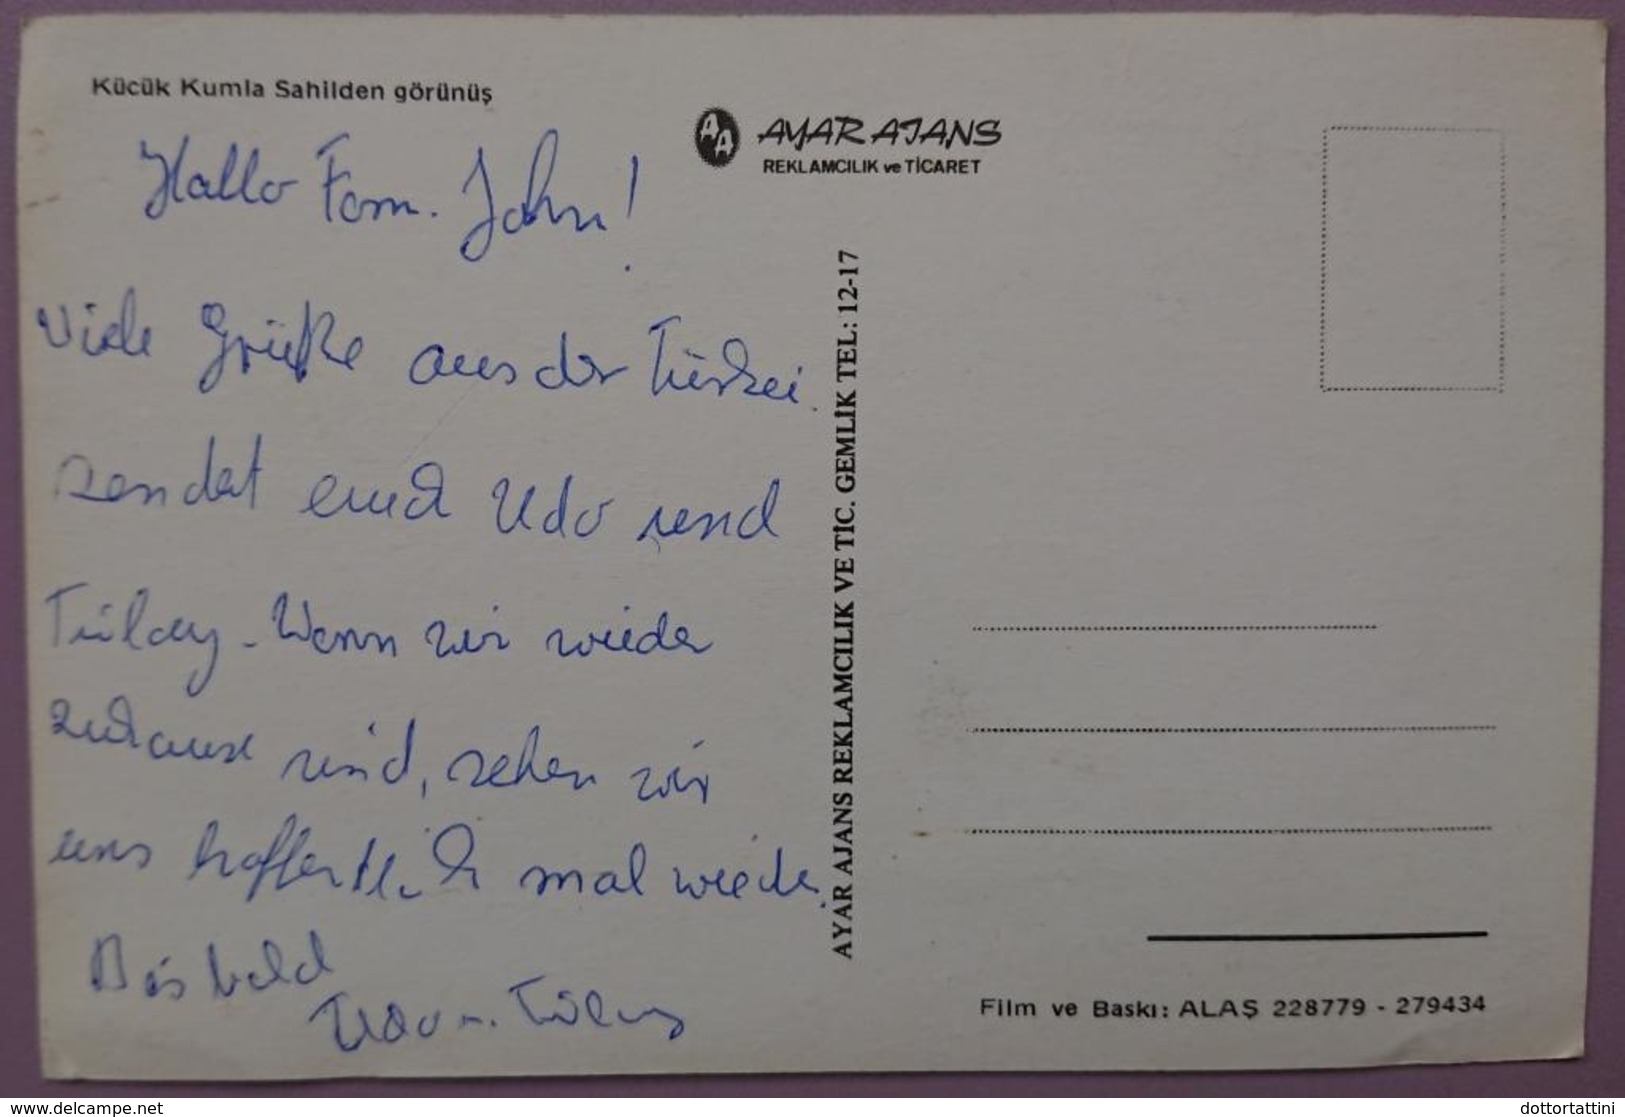 Kücük Kumla Sahilden görünüş
Hallo Fam. John!
Viele Grüße aus der Türkei
sendet euch Udo und
Tülay. Wenn wir wieder
zuhause sind, sehen wir
uns hoffentlich mal wieder.
Bis bald
Udo u. Tülay
AA
AYAR AJANS
REKLAMCILIK ve TİCARET
AYAR AJANS REKLAMCILIK VE TİC. GEMLİK TEL: 12-17
Film ve Baskı: ALAŞ 228779 - 279434
www.delcampe.net
dottortattini